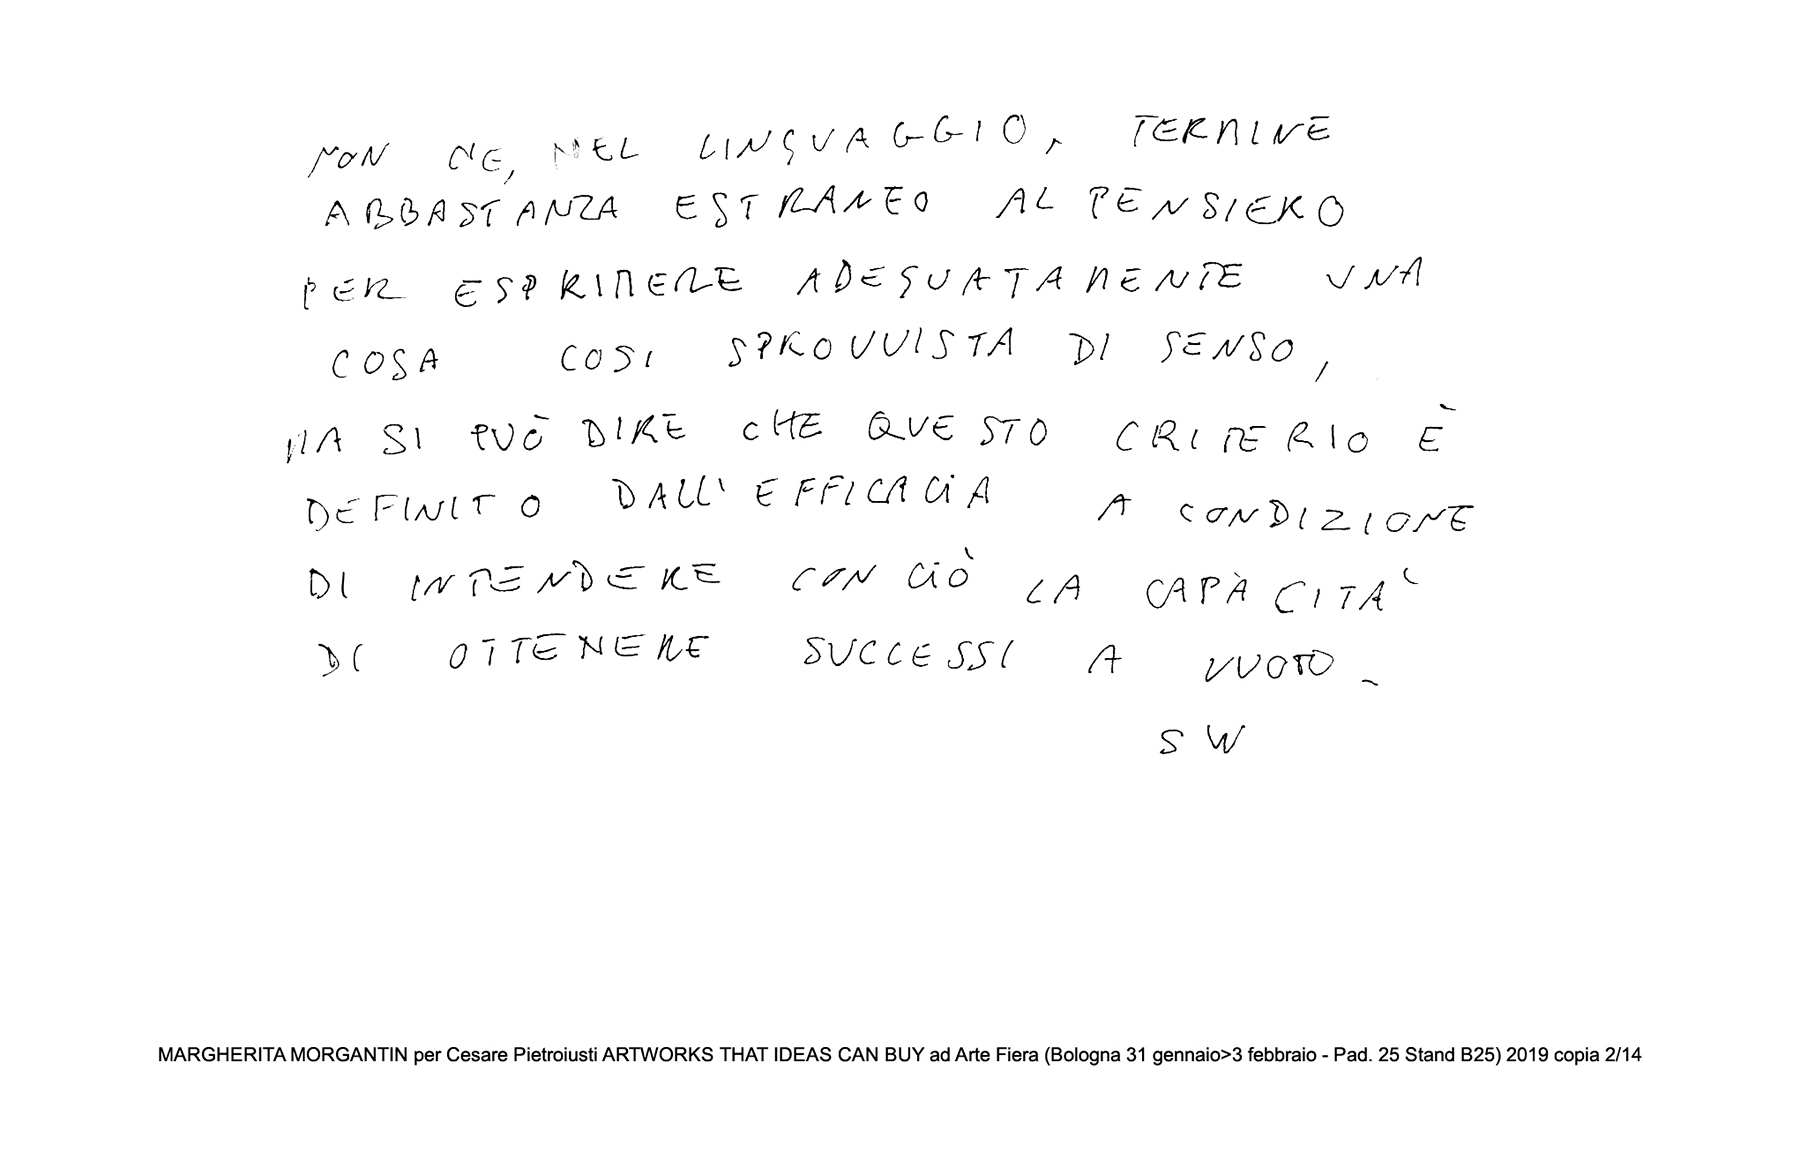 NON CNE, NEL LINGUAGGIO, TERMINE
ABBASTANZA ESTRANEO AL PENSIERO
PER ESPRIMERE ADEGUATAMENTE UNA
COSA COSI SPROVVISTA DI SENSO,
MA SI PUÒ DIRE CHE QUESTO CRITERIO È
DEFINITO DALL'EFFICACIA A CONDIZIONE
DI INTENDERE CON CIÒ LA CAPÀCITA'
DI OTTENERE SUCCESSI A VUOTO_
SW
MARGHERITA MORGANTIN per Cesare Pietroiusti ARTWORKS THAT IDEAS CAN BUY ad Arte Fiera (Bologna 31 gennaio>3 febbraio - Pad. 25 Stand B25) 2019 copia 2/14